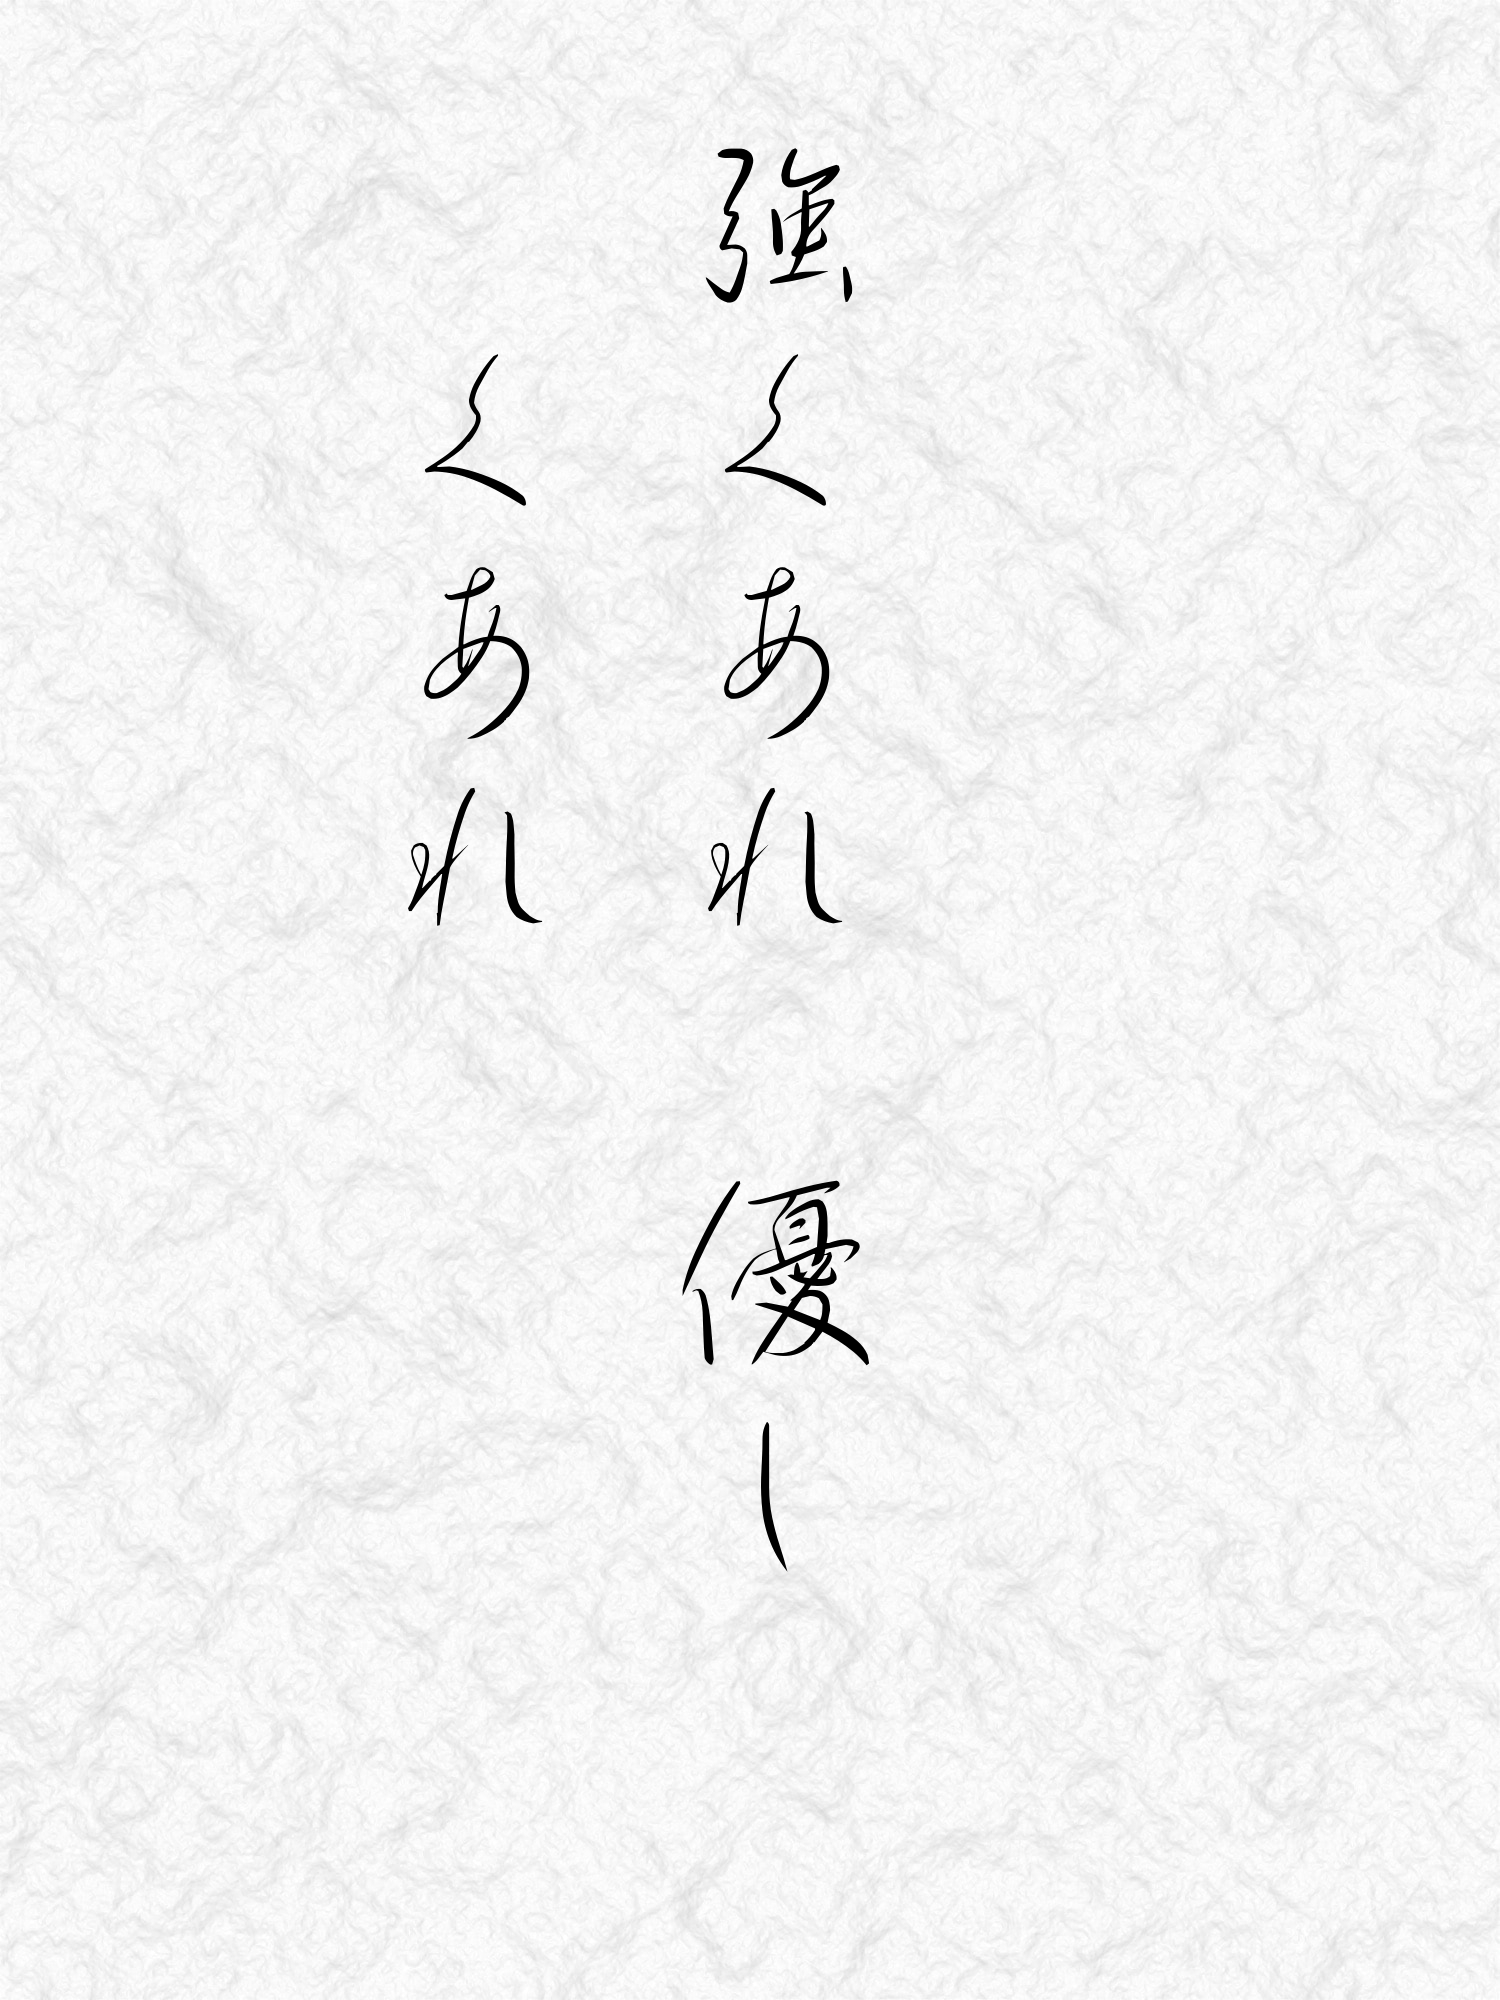 強くあれ　優し
くあれ